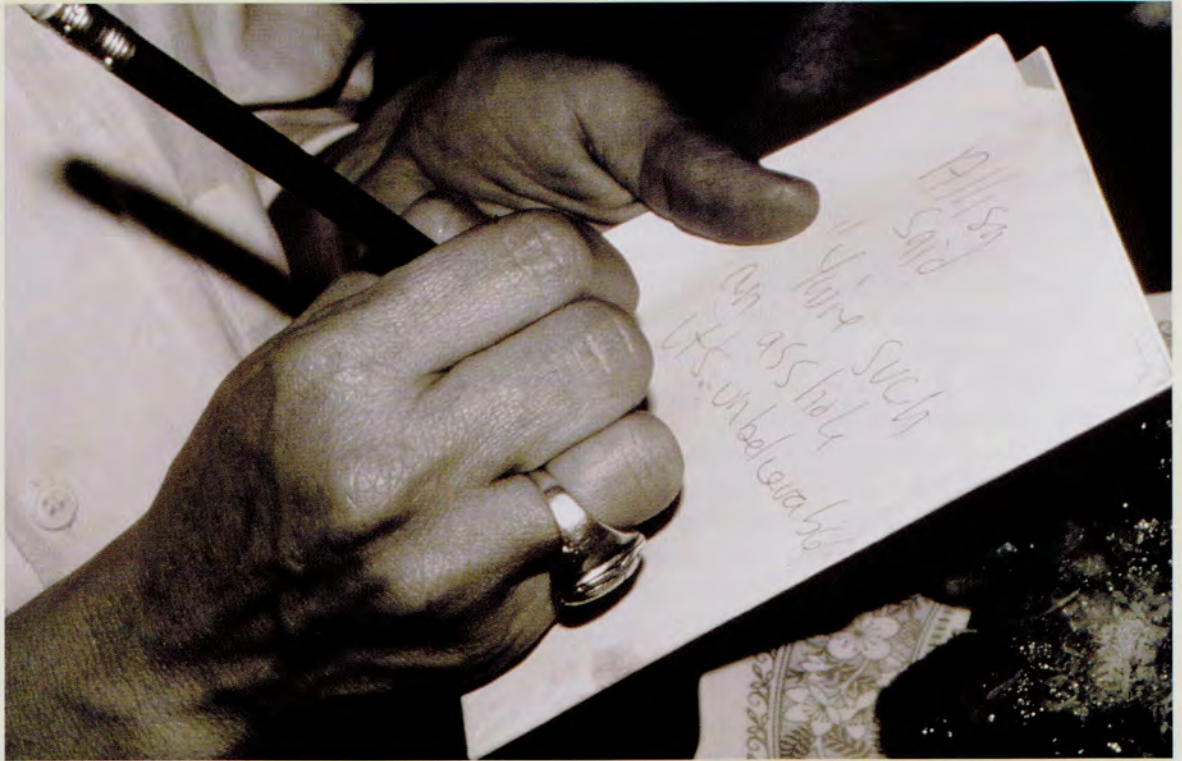 Alissa
said
"You're such
an asshole
it's unbelievable